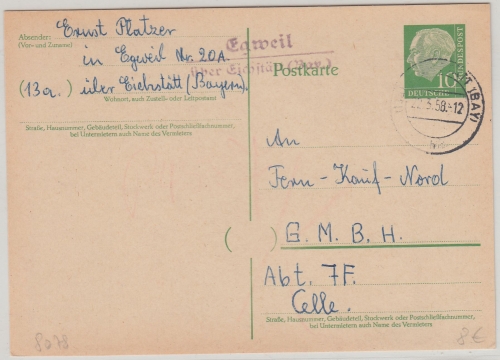 Absender:
(Vor- und Zuname)
Ernst Platzer
in Egweil Nr. 20A
(13a.) über Eichstätt (Bayern).
Wohnort, auch Zustell- oder Leitpostamt
Straße, Hausnummer, Gebäudeteil, Stockwerk oder Postschließfachnummer,
bei Untermietern auch Name des Vermieters
Egweil
über Eichstätt (Bay.)
Postkarte
DEUTSCHE BUNDESPOST
10
(BAY)
5.58.-12
An
Fern-Kauf-Nord
G. M. B. H.
Abt. 7F.
Celle.
Straße, Hausnummer, Gebäudeteil, Stockwerk oder Postschließfachnummer,
bei Untermietern auch Name des Vermieters
8078
8€